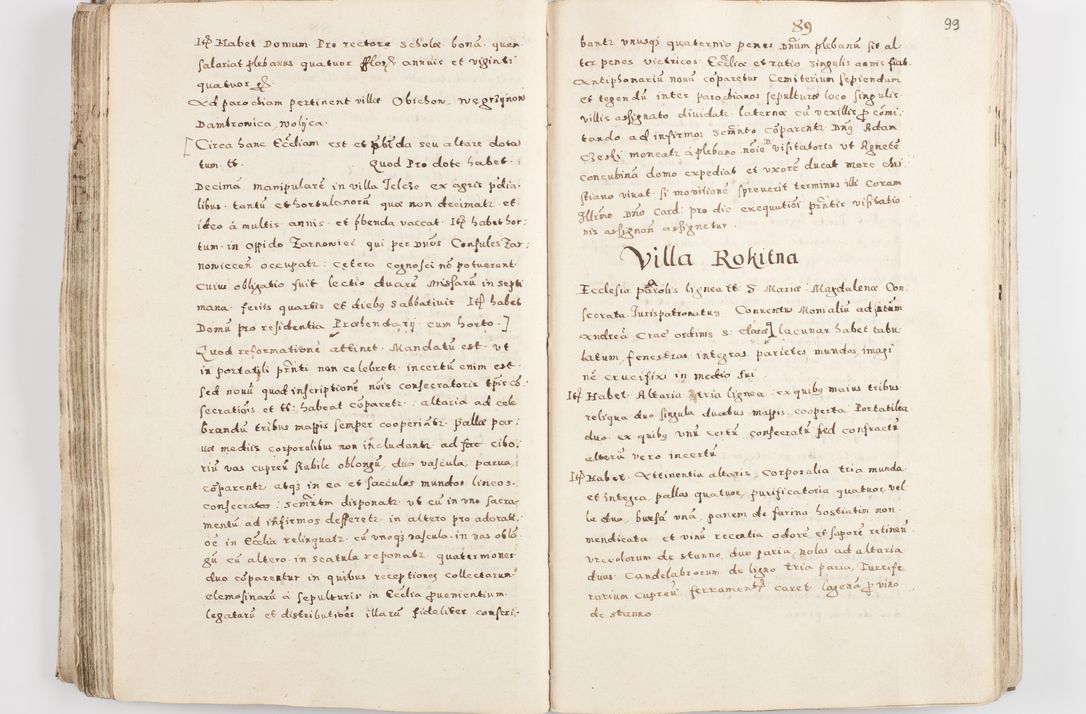 Itẽ Habet Domum Pro rectore scholæ bonã quem
salariat plebanus quatuor flor: annuis et viginti
quatuor gr.
Ad parochiam pertinent villæ Obichon, Węgrzÿnow
Dambrowica, wolica.
[Circa hanc Ecc̃liam est et p̃b̃da seu altare dota
tum. tt. Quod Pro dote habet.
Decimã manipularẽ in villa Jelcze ex agris p̃dia
libus tantũ et hortulanorũ quæ non decimatʳ et
ideo à multis annis et p̃benda vaccat. Itẽ habet hor
tum in Oppido Zarnowiec qui per Dños Consules Zar
nowiecen̄ occupatʳ: cetera cognosci nõ potuerunt
Cuius obligatio fuit lectio duarũ Missarũ in septi
mana feriis quartis et diebꝰ sabbativis Itẽ habet
Domũ pro residentia Prebendarij cum horto.]
Quod reformationẽ attinet. Mandatũ est ut
in portatili p̃nti non celebretʳ incertũ enim est
sed nouũ quod inscriptionẽ nõis consecratoris tp̃is cõ
secrationis et tt: habeat cõparetʳ: altaria ad cele
brandũ tribus mappis semper cooperiãtʳ. Pallæ par
uæ mediis corporalibus non includantʳ ad fac cibo
riũ vas cupreũ stabile oblongũ, duo vascula, parua,
cõparentʳ atqꝫ in ea et sacculos mundos lineos
consecratos: Sem̃rtm disponatʳ ut cũ in vno sacra
mentũ ad infirmos defferetʳ in altero pro adorati
oẽ in Ecc̃lia relinquatʳ cũ vnoqꝫ vasculo in vas oblõ
gũ cũ altero in scatula reponatʳ quaterniones
duo cõparentur in quibus receptiones collectarum
elemosinarũ à sepulturis in Ecc̃lia p̃uenientium
legatarũ et distributiões illarũ fideliter conscri

89 99
bantʳ vnusqꝫ quaternio penes Dñum plebanũ sit al
ter penes victricos Ecc̃liæ et ratio singulis annis fiat.
Antiphonariũ nouũ cõparetur Cemiterium sepiendum
et tegendũ inter parochianos sepulturæ loco singulis
villis assignato diuidatʳ laterna cũ vexillis p̃ comi
tando ad infirmos Scm̃nto cõparentʳ Dñꝰ Adam
Czeski moneatʳ à plebano nõie D visitatoris vt Agnetẽ
concubinã domo expediat et vxorẽ ducat more chri
stiano viuat. si monitionẽ spreuerit terminus illi Coram
Illr̃mo Dño Card: pro die exequutiõi p̃ntis visitatio
nis assignan̄ assignetur.
Villa Rokitna
Ecclesia paroĩlis lignea tt S. Mariæ Magdalenæ Con
secrata Iurispatronatus Conuentus Monialiũ ad sctum
Andreã Crac ordinis s. Claræ] lacunar habet tabu
latum, fenestras integras, parietes mundos, imagi
nẽ crucifixi in medio sui
Itẽ Habet Altaria tria lignea, ex quibꝰ maius tribus
reliqua duo singula duabus mappis cooperta. Portatilia
duo ex quibꝰ vnũ certũ consecratũ sed confractũ
alterũ vero incertũ.
Itẽ Habet. Attinentia altaris, Corporalia tria munda
et integra, pallas quatuor, purificatoria quatuor, vel
la duo, bursã vnã, panem de farina hostiatim non
mendicata et vinũ recentia odorẽ et saporẽ retinen̄
vrceolorum de stanno, duo paria, nolas ad altaria
duas Candelabrorum de ligno tria paria, Turrife
rarium cupreũ ferramentꝫ caret lagenã p̃ vino
de stanno